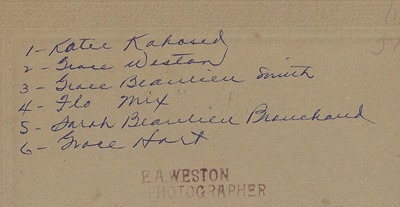 1- Katie Kahosed
2- Grace Weston
3- Grace Beaulieu Smith
4- Flo Mix
5- Sarah Beaulieu Branchaud
6- Grace Hart
E.A. WESTON
PHOTOGRAPHER